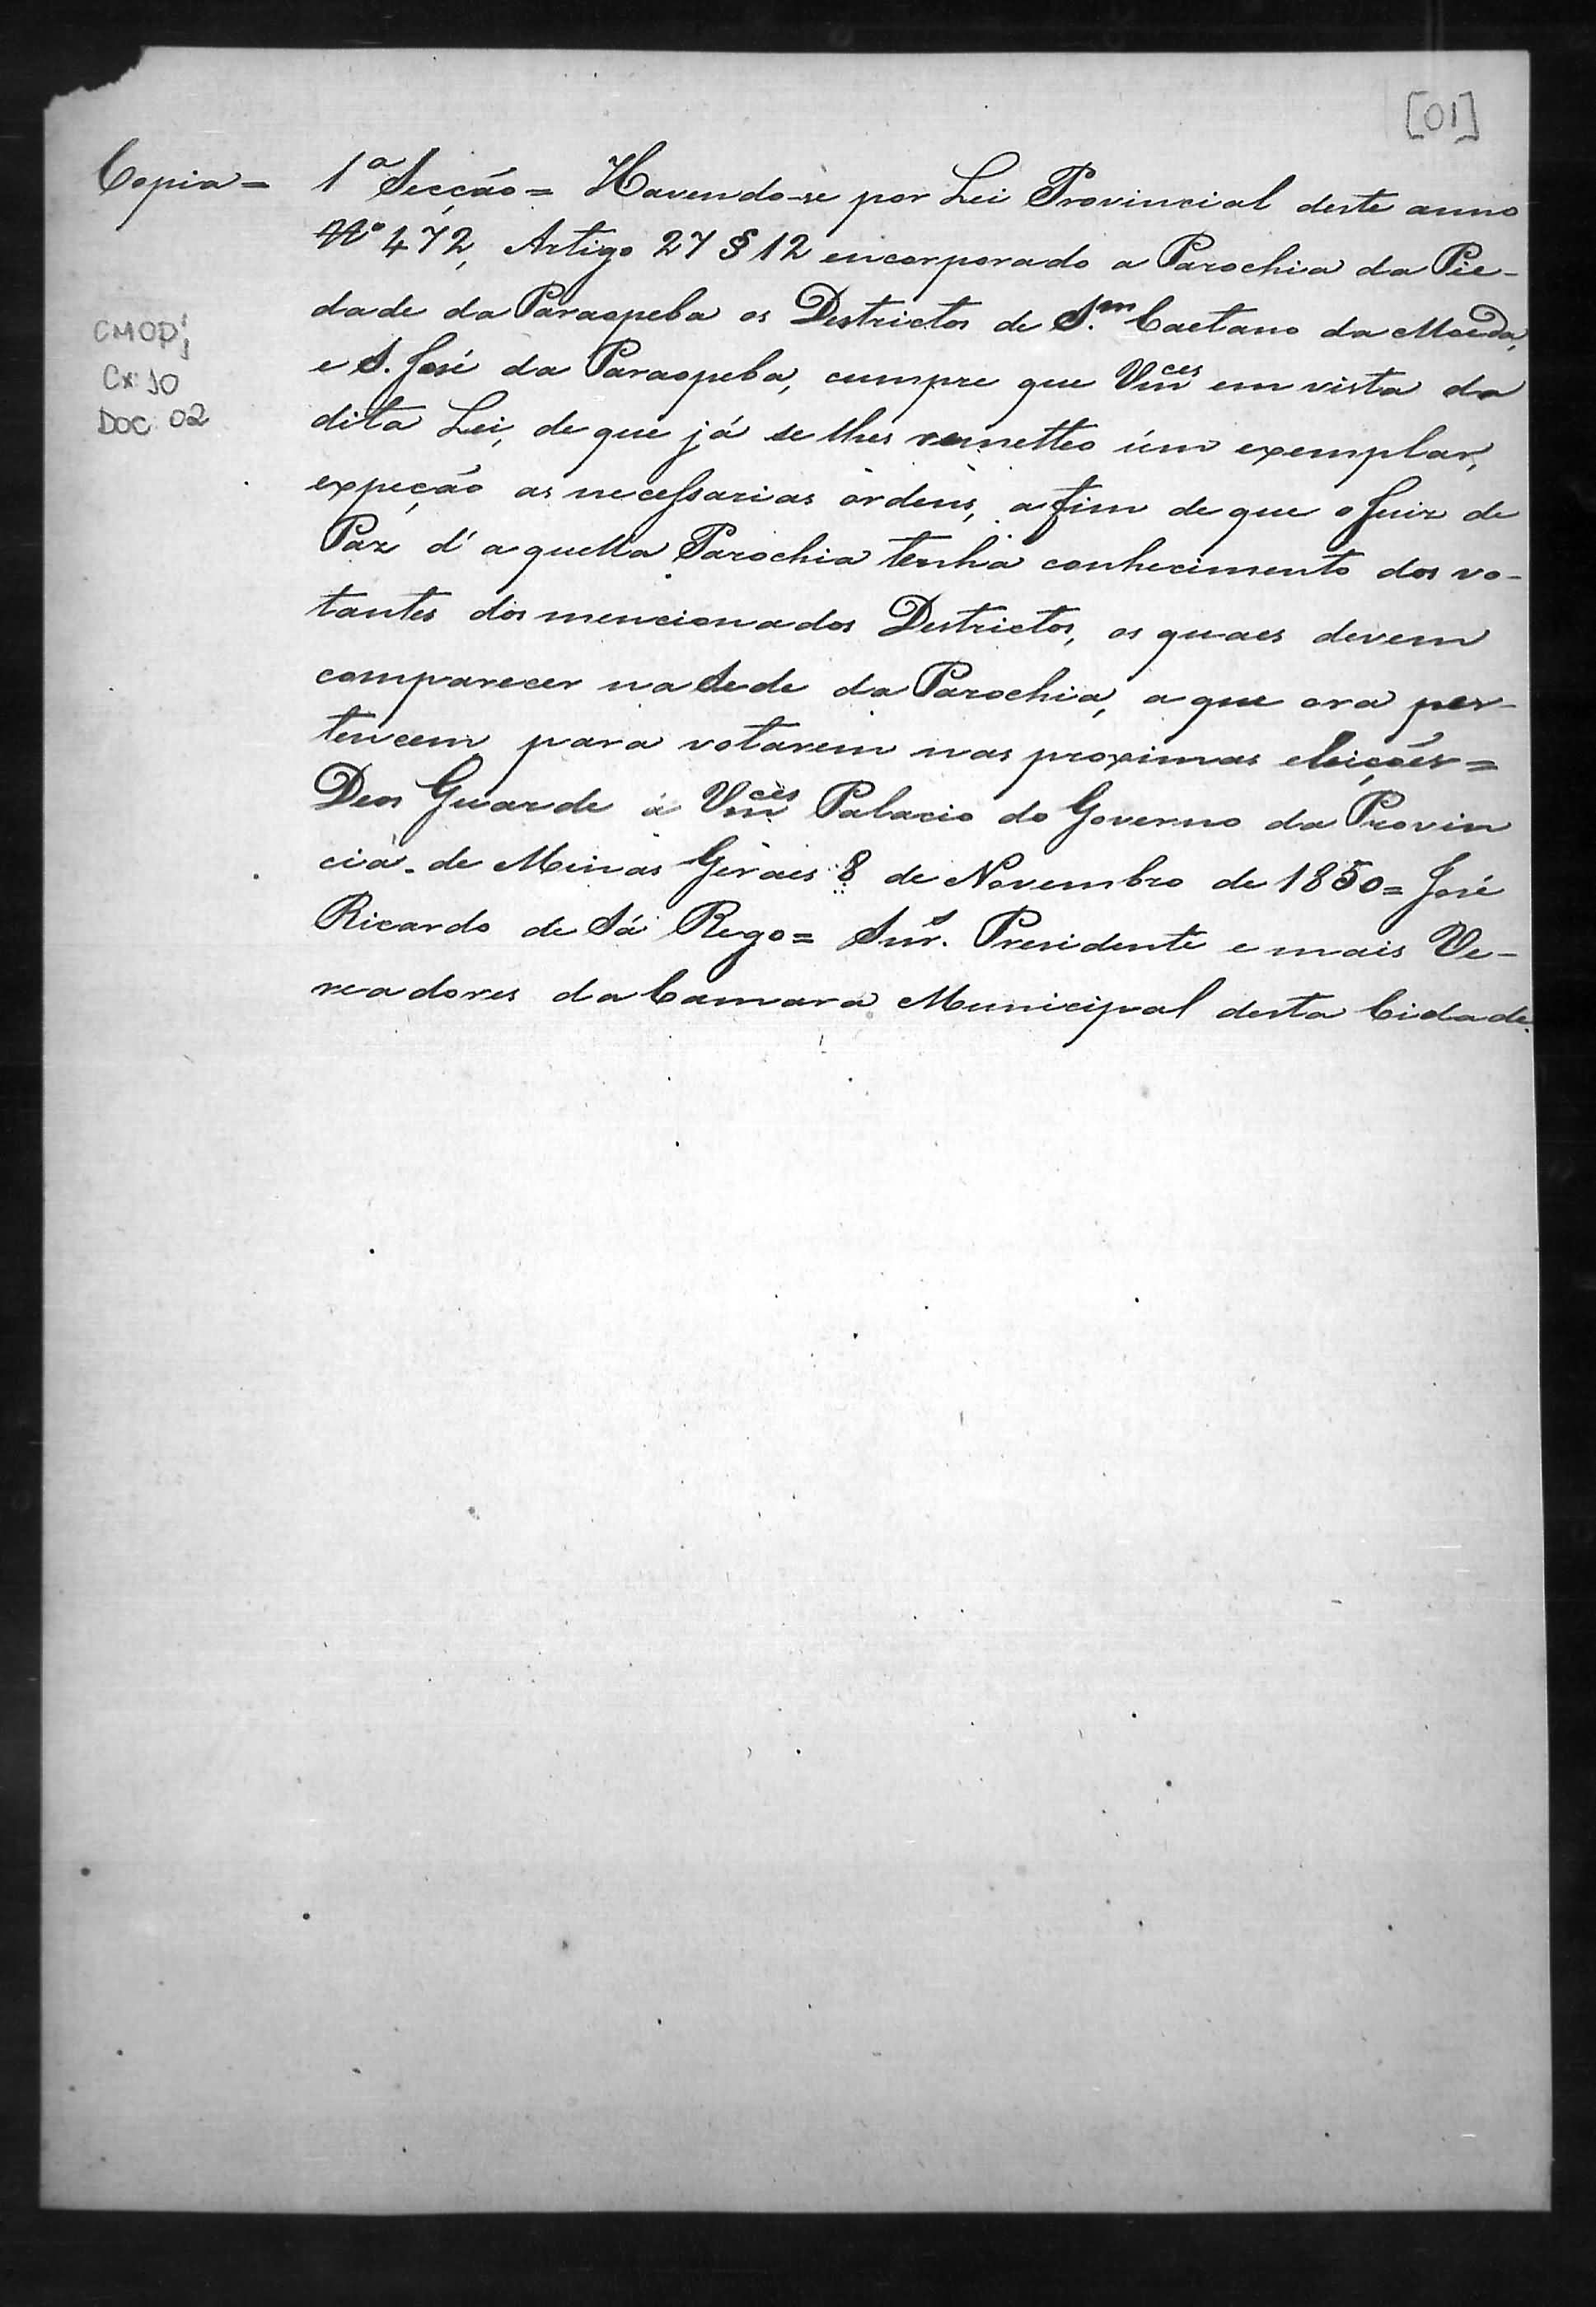 [01]
Copia = 1ª Secção = Havendo-se por Lei Provincial deste anno
Nº 472, Artigo 27 § 12 encorporado a Parochia da Pie-
dade da Paraopeba os Destrictos de S.m Caetano da Moeda,
e S. José da Paraopeba, cumpre que Vmces em vista da
dita Lei, de que já se lhes remetteo um exemplar,
expeção as necessarias ordens, a fim de que o Juiz de
Paz d'aquella Parochia tenha conhecimento dos vo-
tantes dos mencionados Destrictos, os quaes devem
comparecer na Sede da Parochia, a que ora per-
tencem para votarem nas proximas eleições =
Deos Guarde a Vmces Palacio do Governo da Provin
cia de Minas Geraes 8 de Novembro de 1850 = José
Ricardo de Sá Rego = Snrs. Presidente e mais Ve-
readores da Camara Municipal desta Cidade.
CMOP;
Cx: 10
DOC: 02